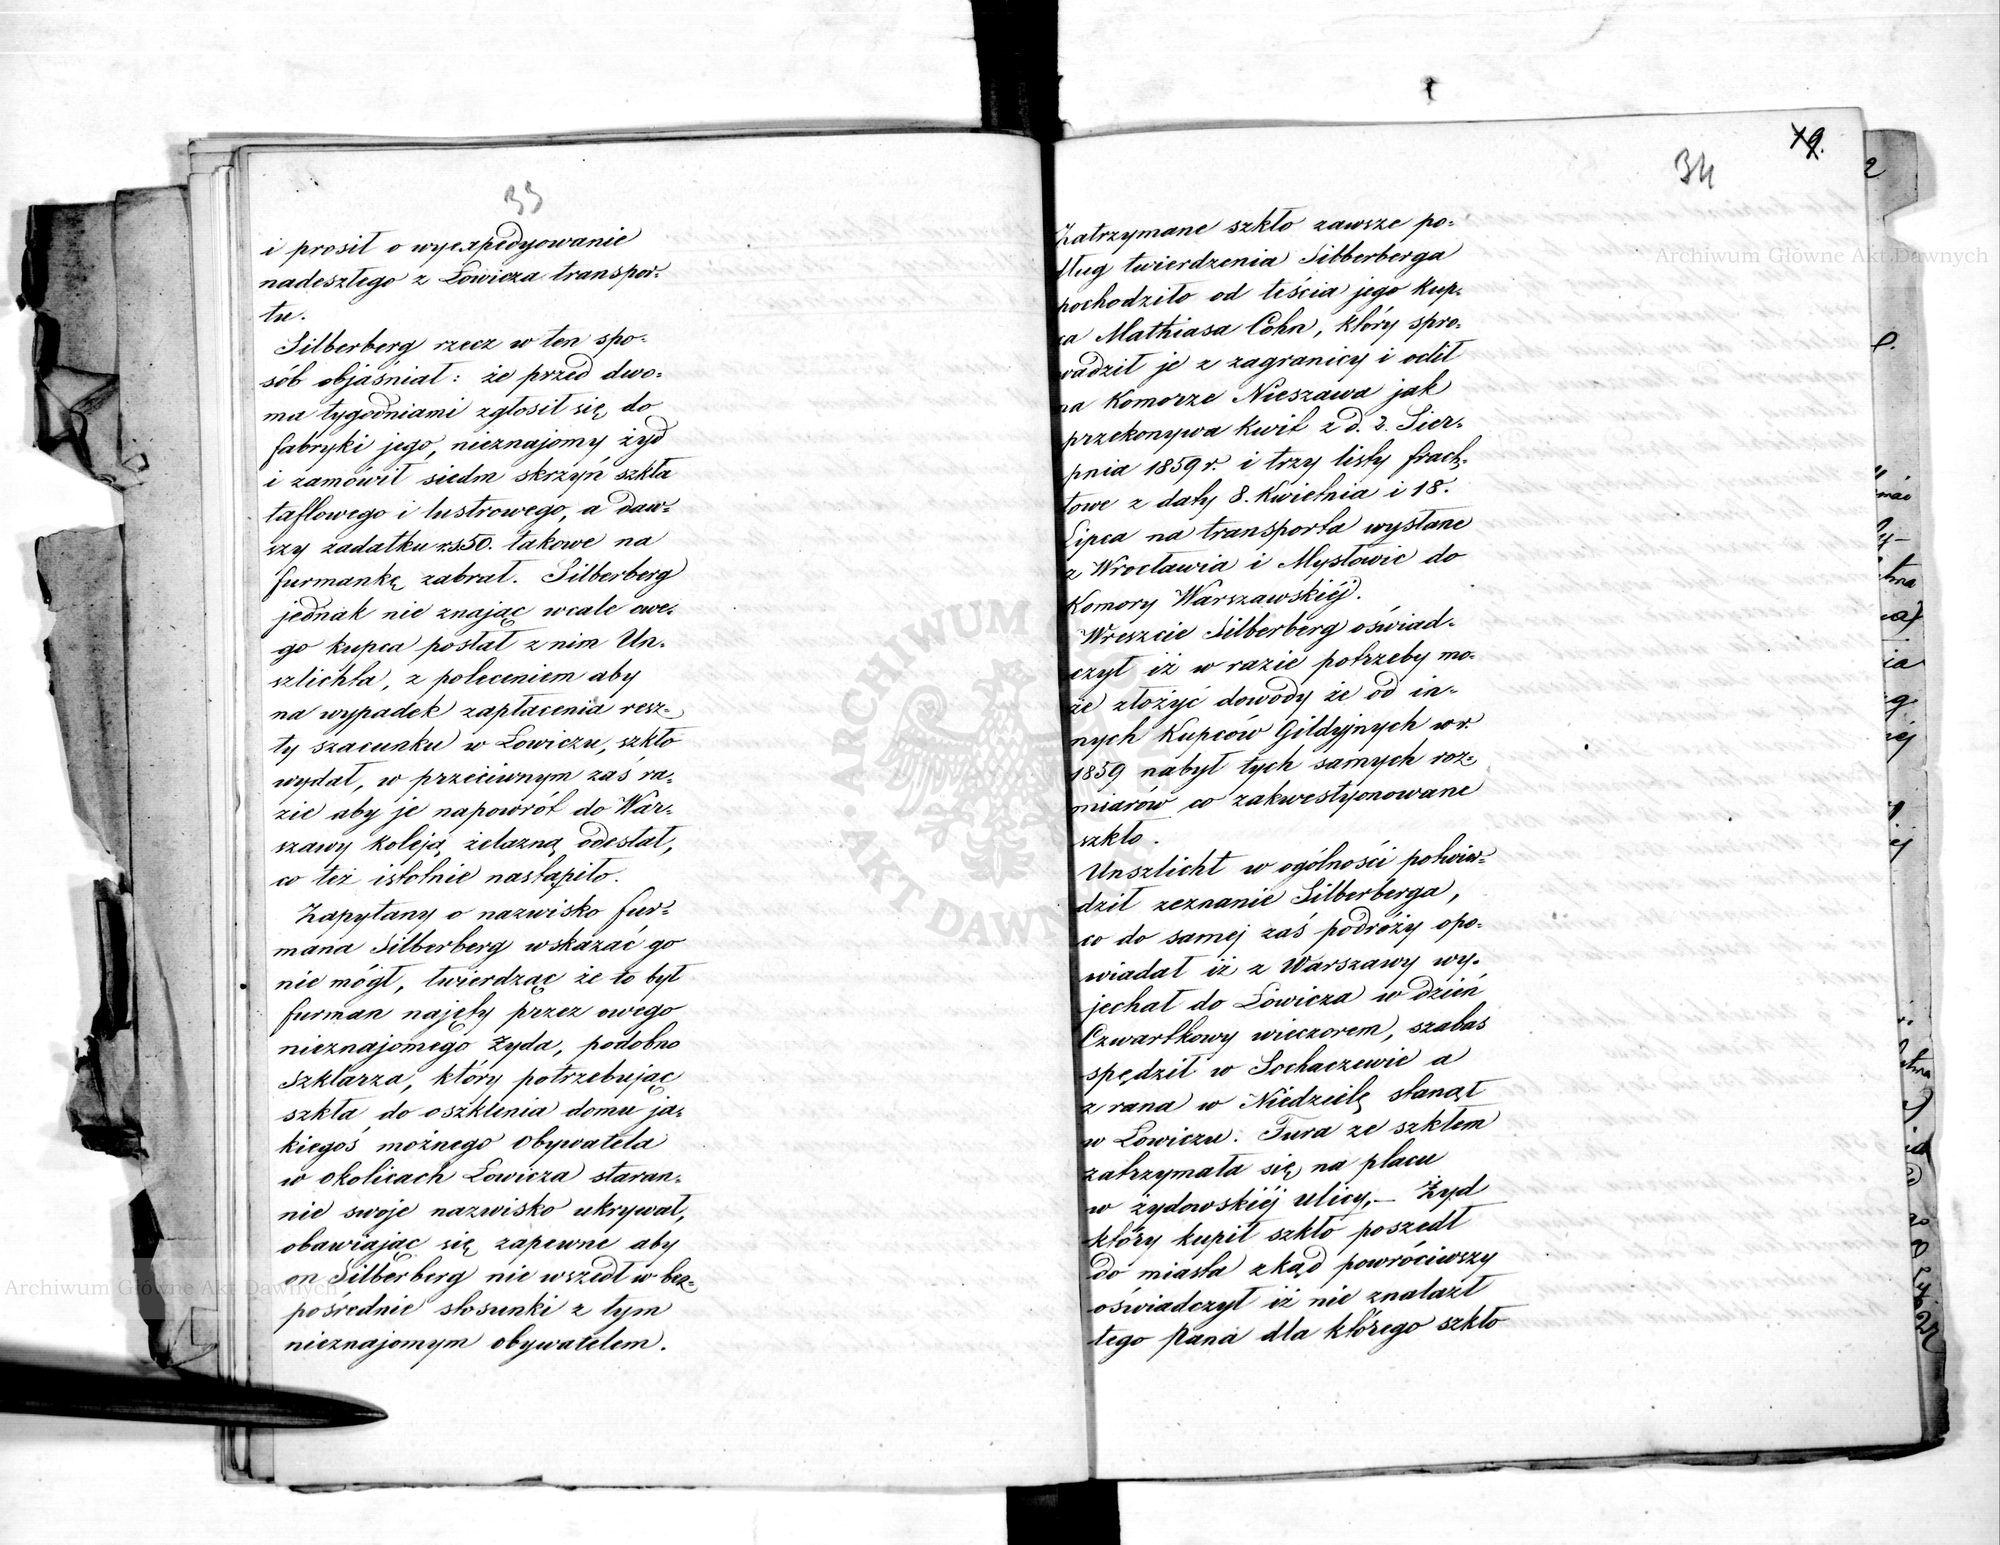 33
i prosił o wyexpedyowanie
nadeszłego z Łowicza transpor-
tu.
Silberberg rzecz w ten spo-
sób objaśniał: że przed dwo-
ma tygodniami zgłosił się do
fabryki jego, nieznajomy żyd
i zamówił siedm skrzyń szkła
taflowego i lustrowego, a daw-
szy zadatku rs 50. takowe na
furmankę zabrał. Silberberg
jednak nie znając wcale owe-
go kupca posłał z nim Un-
szlichta, z poleceniem aby
na wypadek zapłacenia resz-
ty szacunku w Łowiczu, szkło
wydał, w przeciwnym zaś ra-
zie aby je napowrót do War-
szawy koleją żelazną odesłał,
co też istotnie nastąpiło.
Zapytany o nazwisko fur-
mana Silberberg wskazać go
nie mógł, twierdząc że to był
furman najęty przez owego
nieznajomego Żyda, podobno
Szklarza, który potrzebując
szkła do oszklenia domu ja-
kiegoś możnego Obywatela
w okolicach Łowicza staran-
nie swoje nazwisko ukrywał,
obawiając się zapewne aby
on Silberberg nie wszedł w bez-
pośrednie stosunki z tym
nieznajomym obywatelem.
34
9.
Zatrzymane szkło zawsze po-
dług twierdzenia Silberberga
pochodziło od teścia jego Kup-
ca Mathiasa Cohn, który spro-
wadził je z zagranicy i oclił
na Komorze Nieszawa jak
przekonywa kwit z d. 2. Sier-
pnia 1859 r. i trzy listy frach-
towe z daty 8. Kwietnia i 18.
Lipca na transporta wysłane
z Wrocławia i Mysłowic do
Komory Warszawskiéj.
Wreszcie Silberberg oświad-
czył iż w razie potrzeby mo-
że złożyć dowody że od in-
nych Kupców Gildyjnych w r.
1859 nabył tych samych roz-
miarów co zakwestyonowane
szkło.
Unszlicht w ogólności potwier-
dził zeznanie Silberberga,
co do samej zaś podróży opo-
wiadał iż z Warszawy wy-
jechał do Łowicza w dzień
Czwartkowy wieczorem, szabas
spędził w Sochaczewie a
z rana w Niedzielę stanął
w Łowiczu. Fura ze szkłem
zatrzymała się na placu
w żydowskiéj ulicy,— Żyd
który kupił szkło poszedł
do miasta zkąd powróciwszy
oświadczył iż nie znalazł
tego Pana dla którego szkło
Archiwum Główne Akt Dawnych
Archiwum Główne Akt Dawnych
ARCHIWUM
AKT DAWN